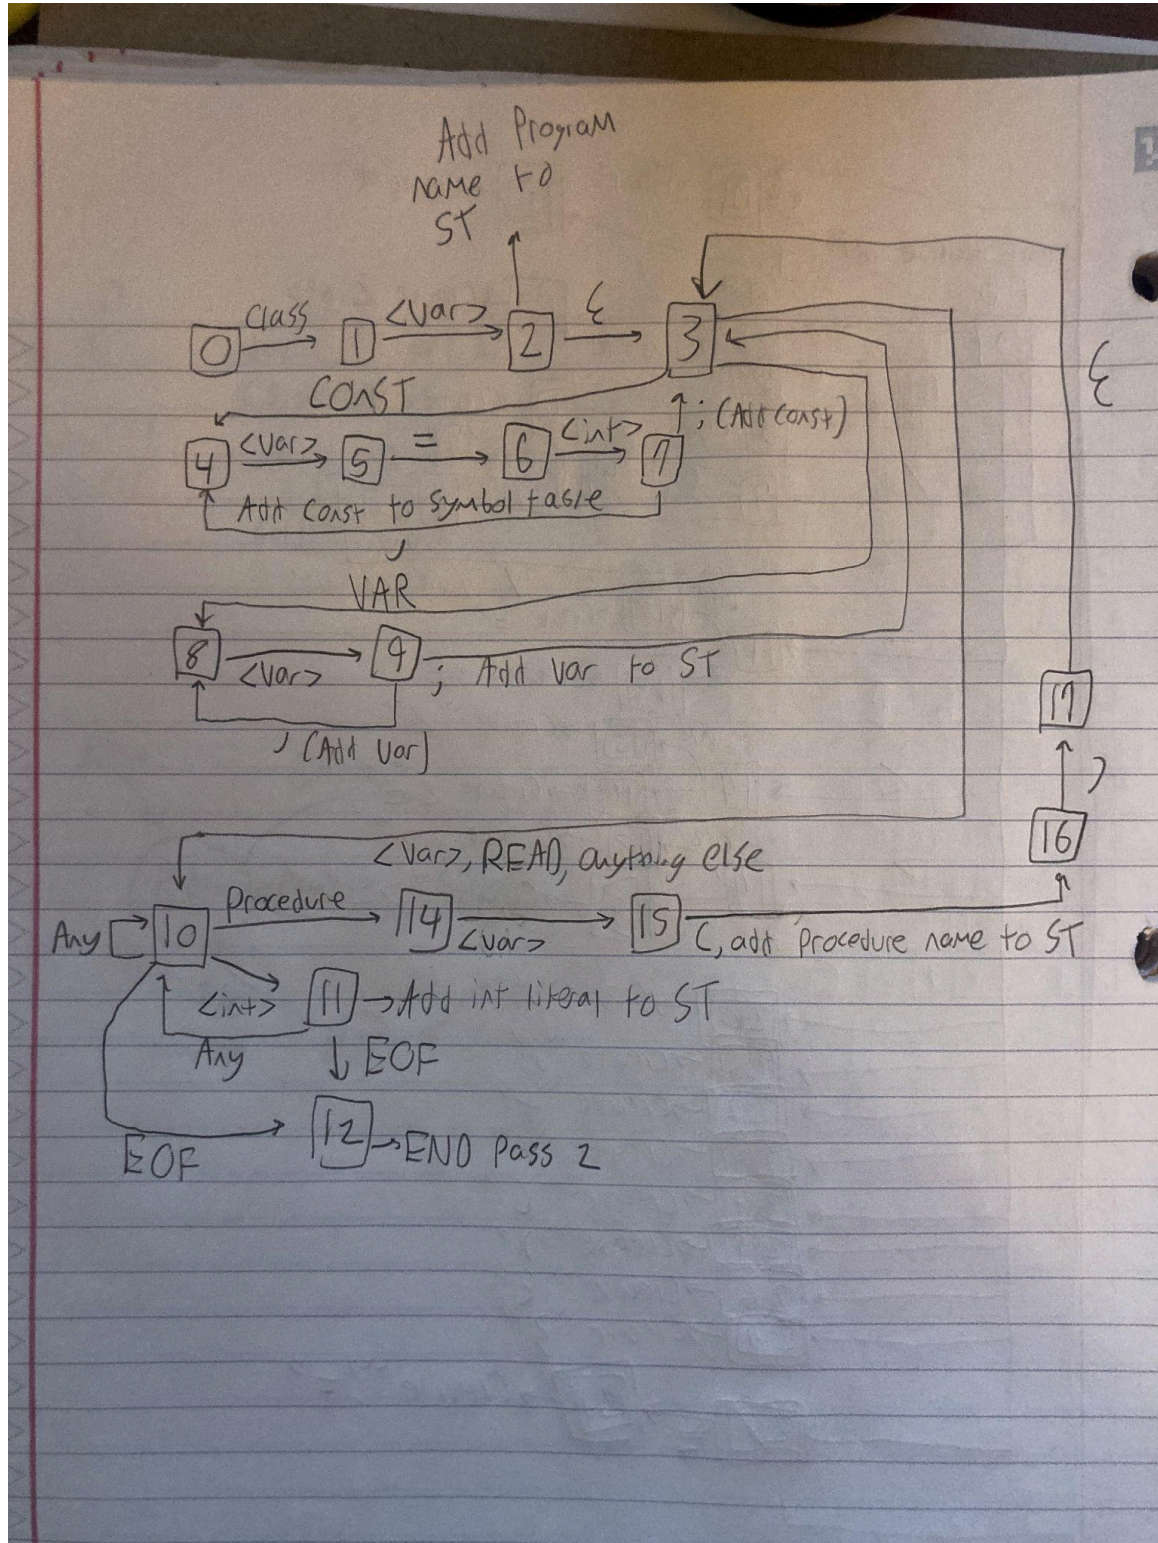 Add Program
name to
ST
class <var> {
0 1 2 3
{
CONST
; (Add const)
<var> = <int>
4 5 6 7
Add const to symbol table
,
VAR
8 9
<var> ; Add var to ST
, (Add var)
17
)
16
<var>, READ, anything else
Procedure
Any 10 14 <var> 15 (, add procedure name to ST
<int> 11 → Add int literal to ST
Any EOF
12 → END Pass 2
EOF